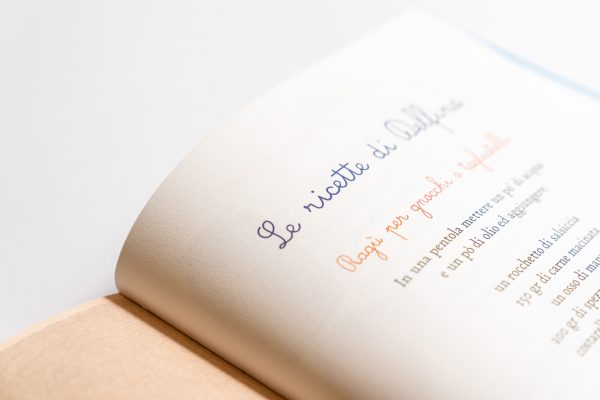 Le ricette di Adelfina
Ragù per gnocchi o tagliatelle
In una pentola mettere un po' di acqua
e un pò di olio ed aggiungere:
un rocchetto di salsiccia
150 gr di carne macinata
un osso di
200 gr di